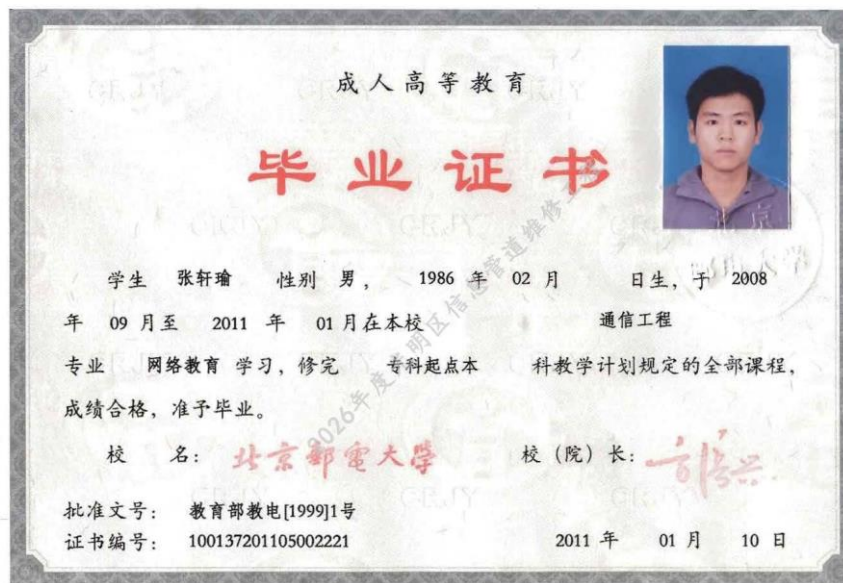 成人高等教育
毕业证书
学生 张轩瑜 性别 男， 1986 年 02 月 日生，于 2008
年 09 月至 2011 年 01 月在本校 通信工程
专业 网络教育 学习，修完 专科起点本 科教学计划规定的全部课程，
成绩合格，准予毕业。
校 名： 北京邮电大学 校（院）长：
批准文号： 教育部教电[1999]1号
证书编号： 100137201105002221 2011 年 01 月 10 日